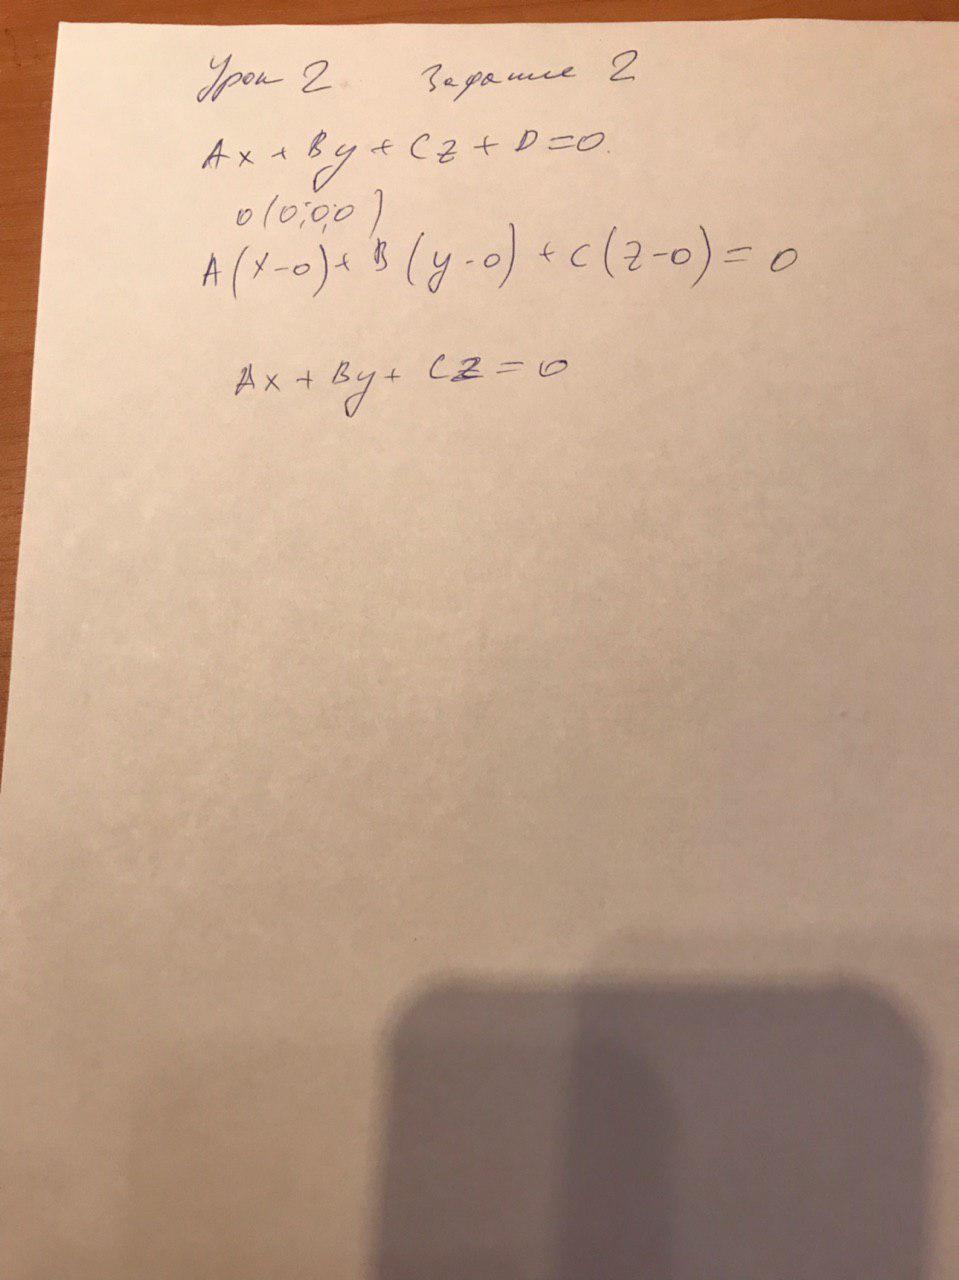 Урок 2 Задание 2
Ax + By + Cz + D = 0.
0(0;0;0)
A(x-0)+ B(y-0) + C(z-0) = 0
Ax + By + Cz = 0